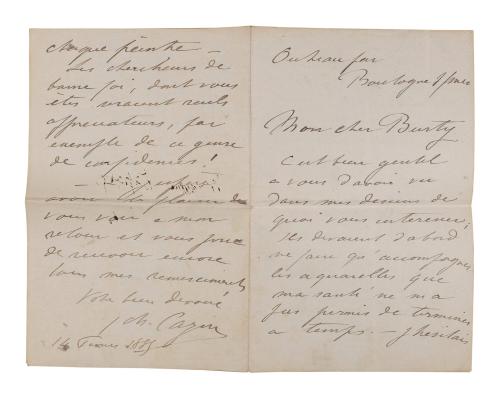 Mon cher Burty
C'est bien gentil
a vous d'avoir vu
dans mes dessins de
quoi vous interesser,
Ils devaient d'abord
ne faire qu'accompagner
les aquarelles que
ma santé ne m'a
pas permis de terminer
a temps. — J'hesitais
chaque peintre —
Les chercheurs de
bonne foi, dont vous
êtes vraiment seuls
par
exemple de ce genre
de confidences!
avoir le plaisir de
vous voir a mon
retour et vous prie
de recevoir encore
tous mes remerciements
Votre bien dévoué
J Ch. Cazin
14 1885